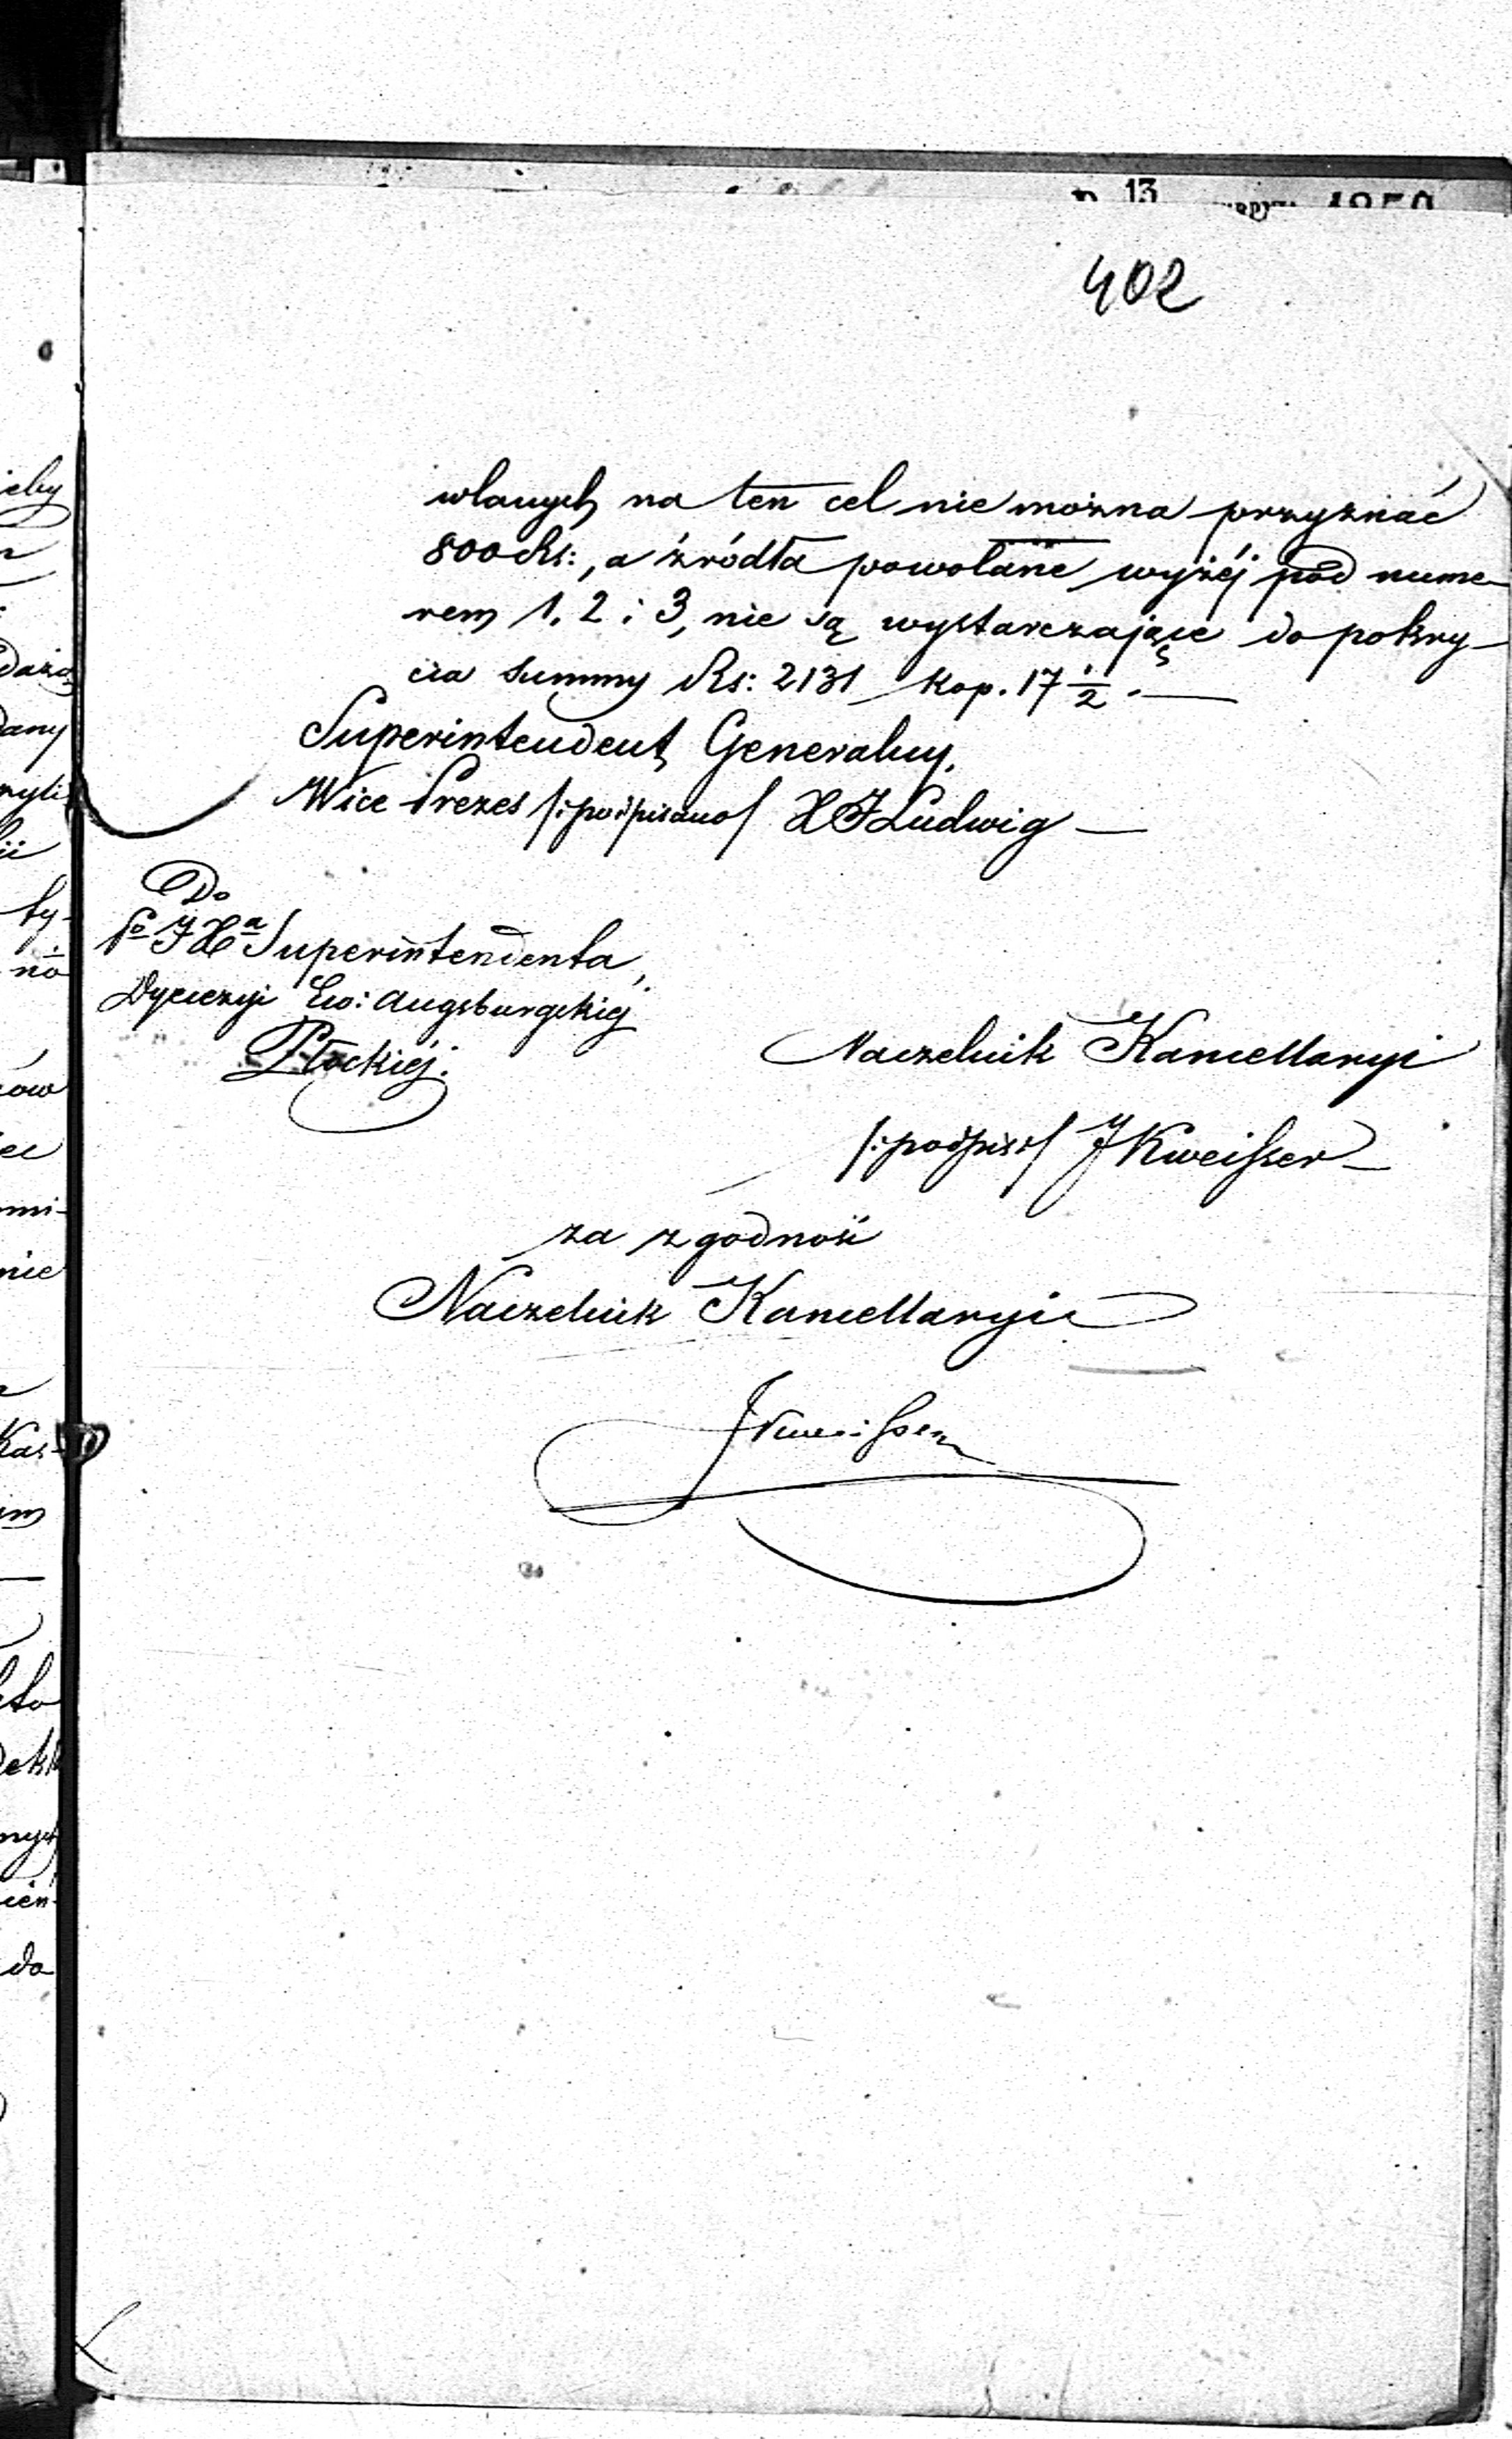 13
402
wlanych na ten cel nie można przyznać
800 Rs:, a źródła powołane wyżéj pod nume-
rem 1, 2 i 3, nie są wystarczające do pokry-
cia summy Rs: 2131 kop. 17 1/2 .—
Superintendent Generalny,
Wice Prezes /:podpisano/ X J Ludwig —
Do
Po J Xa Superintendenta,
Dyecezyi Ew: Augsburgskiéj
Płockiéj.
Naczelnik Kancellaryi
/:podpis:/ J Kweisser —
za zgodność
Naczelnik Kancellaryi
J Kweisser